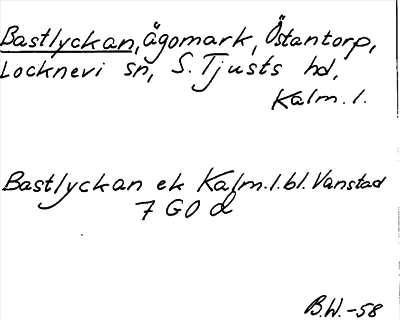 Bastlyckan, ägomark, Östantorp,
Locknevi sn, S. Tjusts hd,
Kalm. l.
Bastlyckan ek Kalm. l. bl. Vanstad
7 GO d
B.W.-58